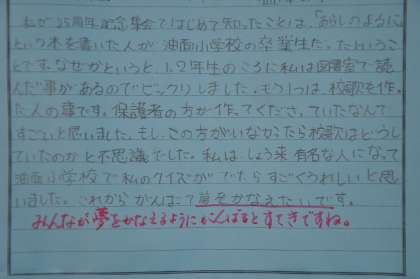 私が25周年記念集会ではじめて知ったことは、「あらしのように」
という本を書いた人が油面小学校の卒業生だったというこ
とです。なぜかというと、1、2年生のころに私は図書室で読
んだ事があるのでビックリしました。もう1つは、校歌を作っ
た人の事です。保護者の方が作ってくださっていたなんて
すごいと思いました。もし、この方がいなかったら校歌はどうし
ていたのかと不思議でした。私は、しょう来有名な人になって
油面小学校で私のクイズがでたらすごくうれしいと思
いました。これからがんばって夢をかなえたいです。
みんなが夢をかなえるようにがんばるとすてきですね。